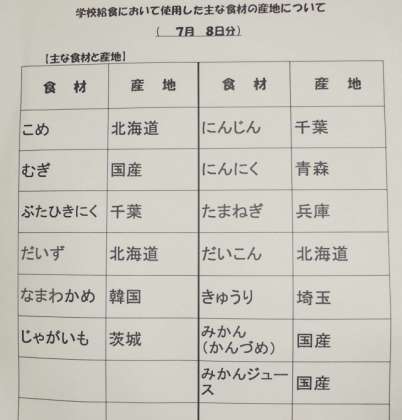 学校給食において使用した主な食材の産地について
( 7月 8日分)
【主な食材と産地】
食 材 産 地 食 材 産 地
こめ 北海道 にんじん 千葉
むぎ 国産 にんにく 青森
ぶたひきにく 千葉 たまねぎ 兵庫
だいず 北海道 だいこん 北海道
なまわかめ 韓国 きゅうり 埼玉
じゃがいも 茨城 みかん
(かんづめ) 国産
みかんジュー
ス 国産